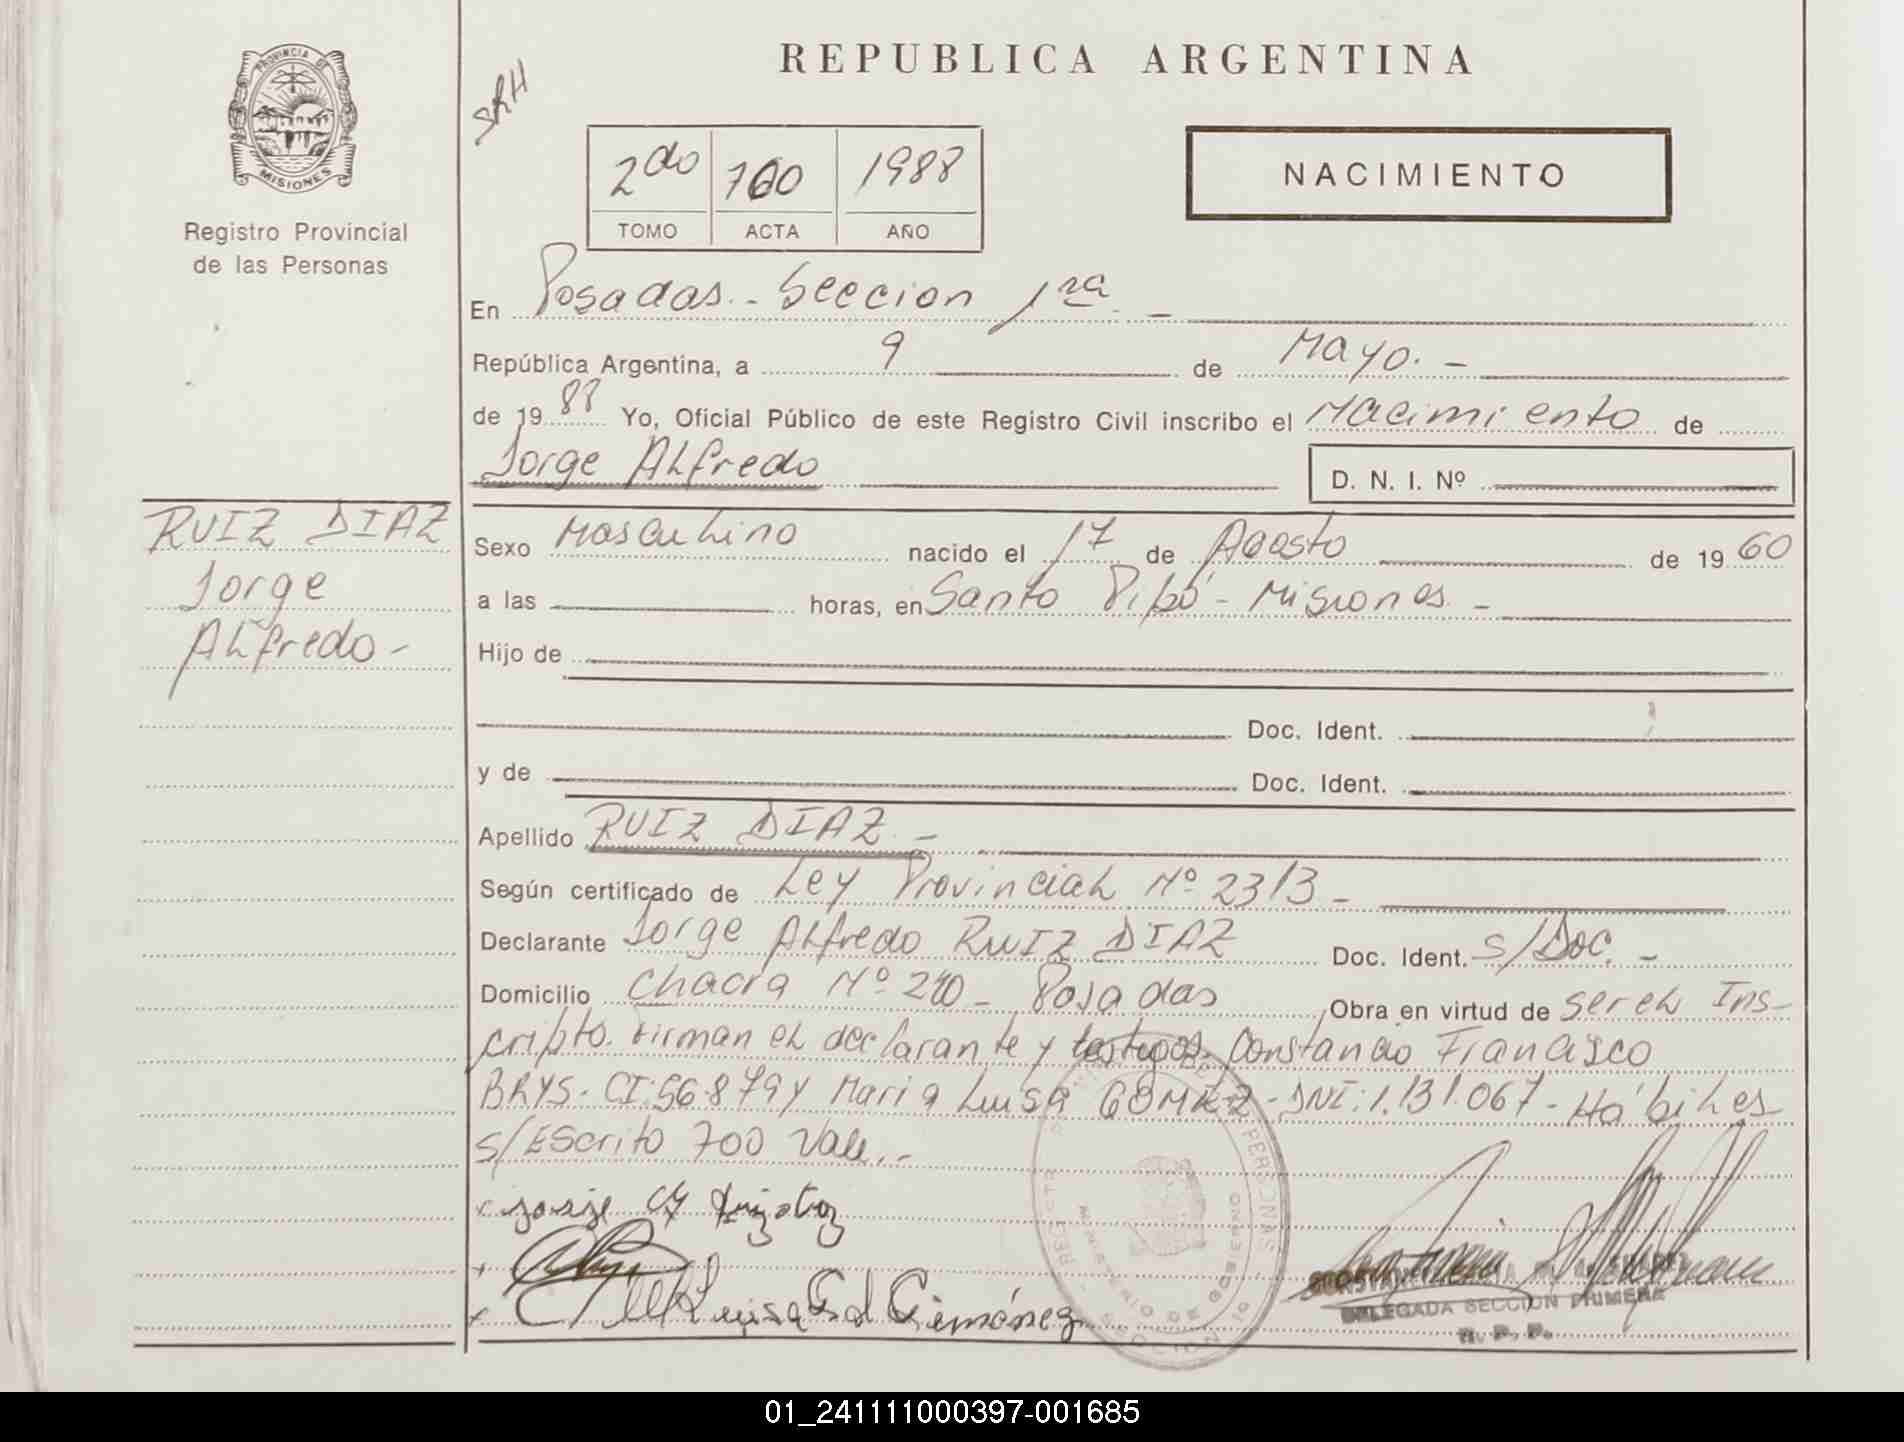 PROVINCIA DE
MISIONES
Registro Provincial
de las Personas
SRH
REPUBLICA ARGENTINA
2do 700 1988
TOMO ACTA AÑO
NACIMIENTO
En Posadas.- Seccion 1ra. -
República Argentina, a 9 de Mayo. -
de 1988 Yo, Oficial Público de este Registro Civil inscribo el Nacimiento de
Jorge Alfredo
D. N. I. Nº
RUIZ DIAZ
Jorge
Alfredo-
Sexo Masculino nacido el 17 de Agosto de 1960
a las horas, en Santo Pipó - Misiones. -
Hijo de
Doc. Ident.
y de Doc. Ident.
Apellido RUIZ DIAZ. -
Según certificado de Ley Provincial Nº 2313 -
Declarante Jorge Alfredo RUIZ DIAZ Doc. Ident. S/Doc. -
Domicilio Chacra Nº 240 - Posadas Obra en virtud de ser el Ins-
cripto. Firman el declarante y testigos. Constancio Francisco
BRYS- CI: 56.879 y Maria Luisa GOMEZ - DNI: 1.131.067 - Hábiles
s/Escrito 700 Vale.. -
REGISTRO PROVINCIAL DE LAS PERSONAS
MINISTERIO DE GOBIERNO
SECCION 1º
x Jorge
x
x Luisa G d Giménez
DELEGADA SECCION PRIMERA
R. P. P.
01_241111000397-001685